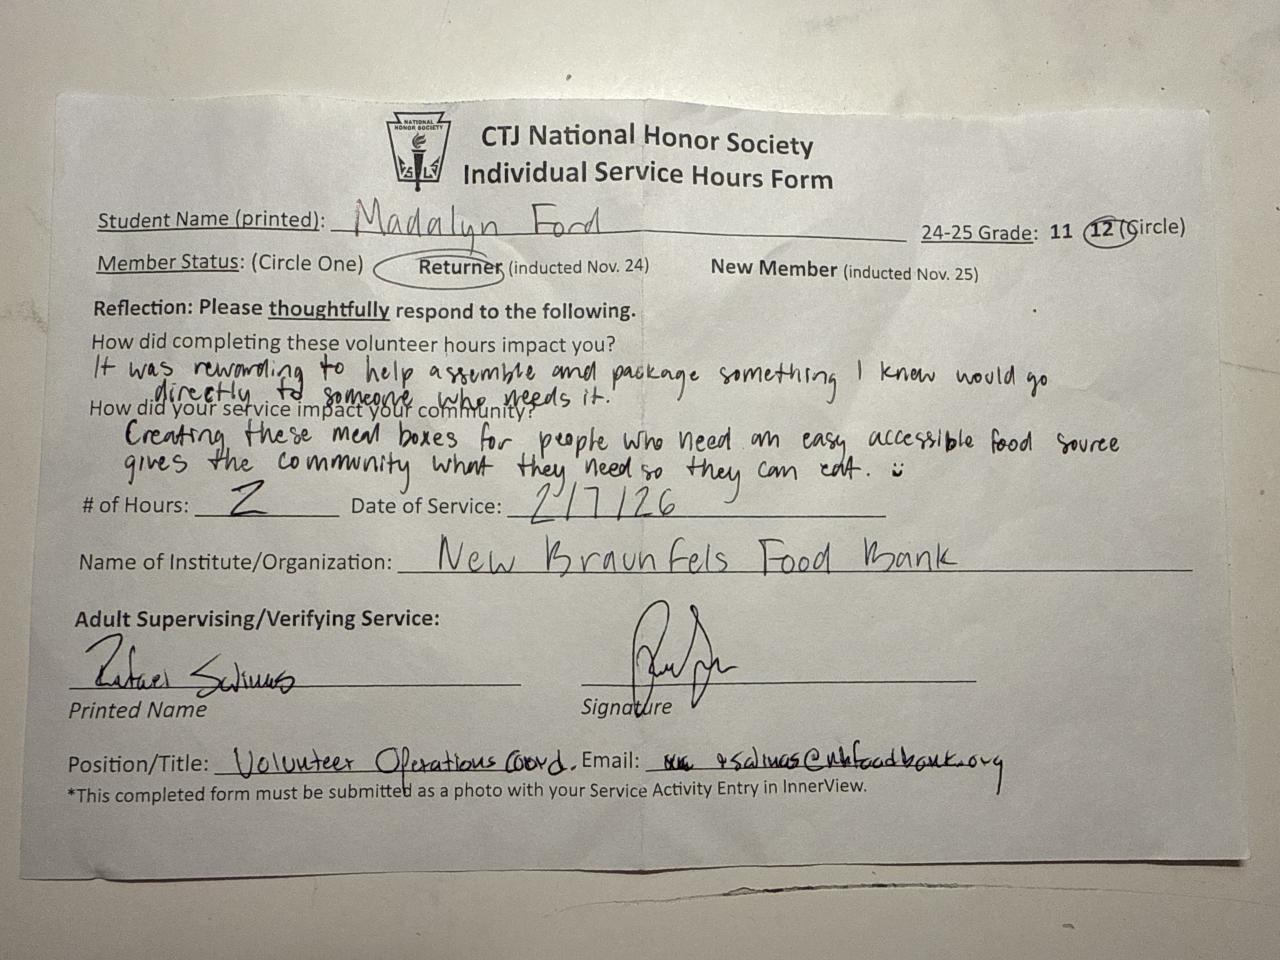 NATIONAL
HONOR SOCIETY
CTJ National Honor Society
Individual Service Hours Form
Student Name (printed): Madalyn Ford 24-25 Grade: 11 12 (Circle)
Member Status: (Circle One) Returner (inducted Nov. 24) New Member (inducted Nov. 25)
Reflection: Please thoughtfully respond to the following.
How did completing these volunteer hours impact you?
It was rewarding to help assemble and package something I know would go
directly to someone who needs it.
How did your service impact your community?
Creating these meal boxes for people who need an easy accessible food source
gives the community what they need so they can eat. :)
# of Hours: 2 Date of Service: 2/7/26
Name of Institute/Organization: New Braunfels Food Bank
Adult Supervising/Verifying Service:
Rafael Salinas
Printed Name Signature
Position/Title: Volunteer Operations Coord. Email: rsalinas@nbfoodbank.org
*This completed form must be submitted as a photo with your Service Activity Entry in InnerView.